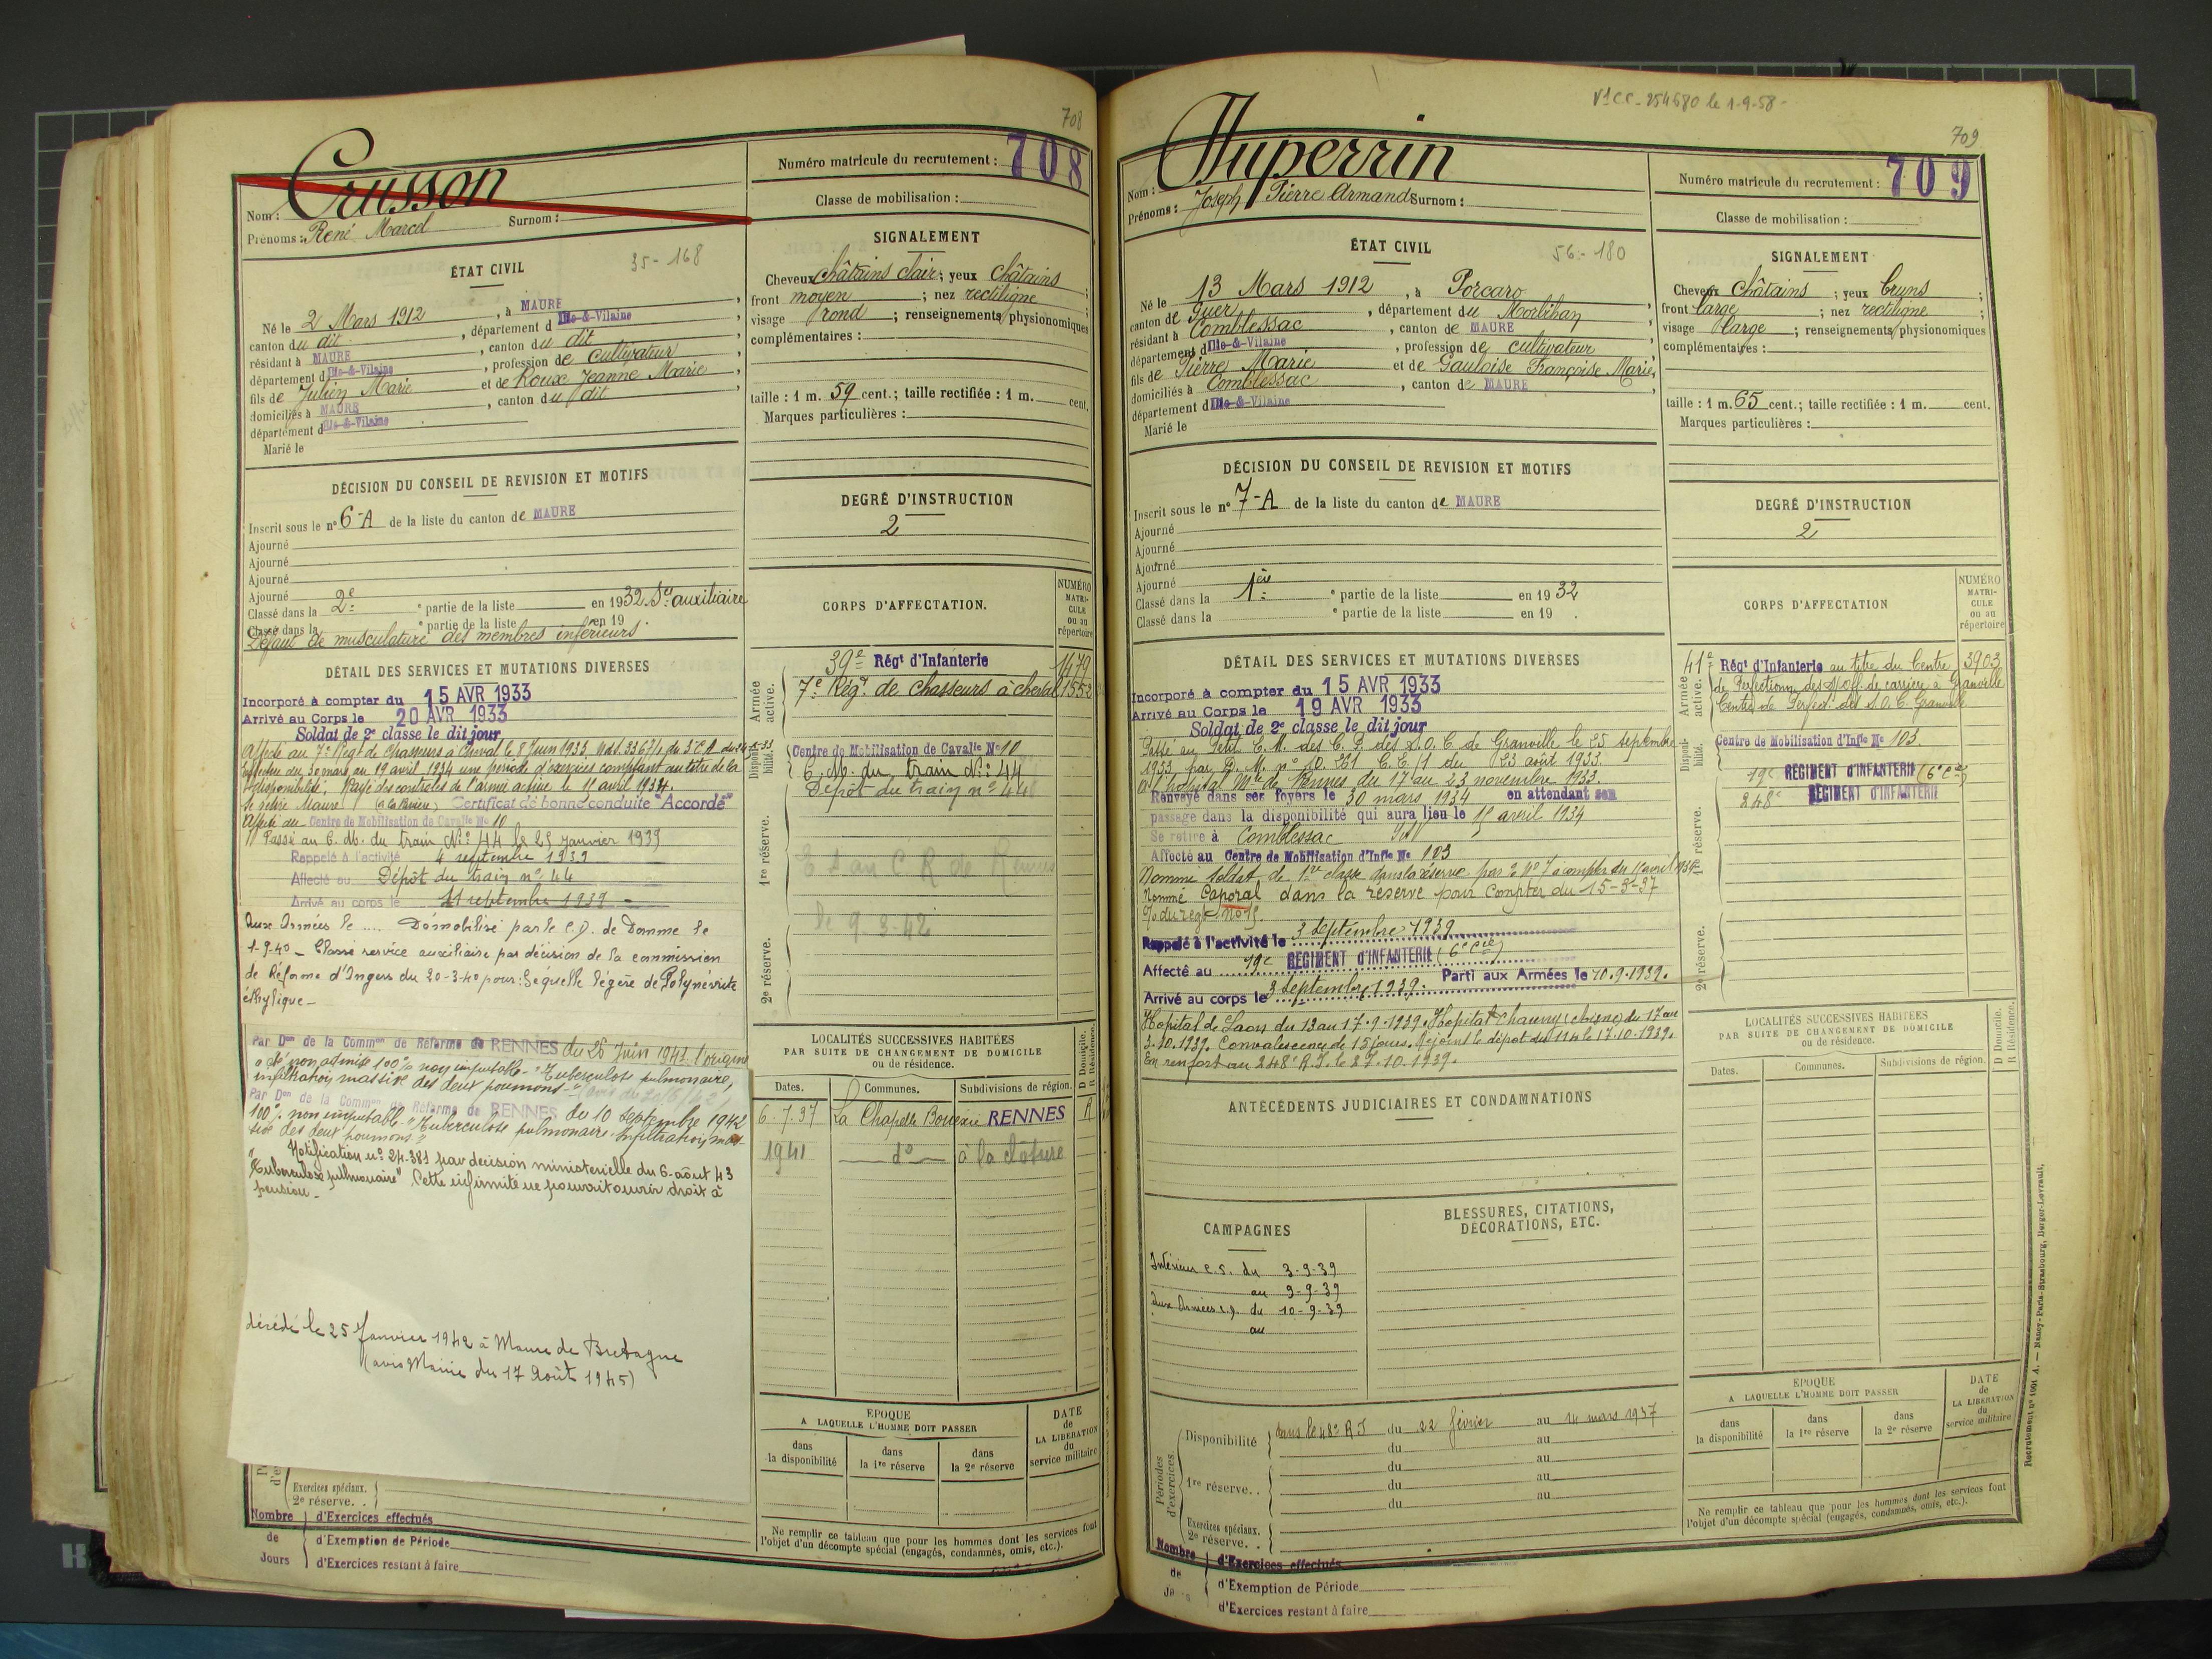 708
Crusson
Nom :
Prénoms : René Marcel Surnom :
Numéro matricule du recrutement : 708
Classe de mobilisation :
ÉTAT CIVIL
35-168
Né le 2 Mars 1912, à MAURE,
canton du dit, département d Ille-&-Vilaine,
résidant à MAURE, canton du dit,
département d Ille-&-Vilaine, profession de cultivateur,
fils de Julien Marie et de Roux Jeanne Marie,
domiciliés à MAURE, canton du dit,
département d Ille-&-Vilaine
Marié le
SIGNALEMENT
Cheveux châtains clair; yeux châtains;
front moyen; nez rectiligne;
visage rond; renseignements physionomiques
complémentaires :
taille : 1 m. 59 cent.; taille rectifiée : 1 m. cent.
Marques particulières :
DÉCISION DU CONSEIL DE REVISION ET MOTIFS
Inscrit sous le n° 6-A de la liste du canton de MAURE
Ajourné
Ajourné
Ajourné
Ajourné
Classé dans la 2e partie de la liste en 1932. Sce auxiliaire
Classé dans la e partie de la liste en 19
Défaut de musculature des membres inférieurs.
DEGRÉ D'INSTRUCTION
2
DÉTAIL DES SERVICES ET MUTATIONS DIVERSES
Incorporé à compter du 15 AVR 1933
Arrivé au Corps le 20 AVR 1933
Soldat de 2e classe le dit jour
Affecté au 7e Régt de Chasseurs à Cheval le 8 Juin 1933
Effectue du 30 mars au 19 avril 1934 une période d'exercices comptant au titre de la
disponibilité. Rayé des contrôles de l'armée active le 15 avril 1934.
Se retire Maure Certificat de bonne conduite "Accordé"
Affecté au Centre de Mobilisation de Cavalie No 10
Passé au C. M. du train No 44 le 25 janvier 1939
Rappelé à l'activité 4 septembre 1939
Affecté au Dépôt du train no 44
Arrivé au corps le 11 septembre 1939
Aux Armées le .... Démobilisé par le C.D. de Domme le
1-9-40 – Classé service auxiliaire par décision de la commission
de Réforme d'Angers du 20-3-40 pour : Séquelle légère de Polynévrite
éthylique –
Par Don de la Common de Réforme de RENNES du 26 Juin 1941. l'origine
a été non admise 100% non imputable - "Tuberculose pulmonaire,
infiltration massive des deux poumons -"
Par Don de la Common de Réforme de RENNES du 10 septembre 1942
100% non imputable - "Tuberculose pulmonaire. Infiltration mas-
sive des deux poumons"
Notification no 24.381 par décision ministérielle du 6 août 43
"Tuberculose pulmonaire" Cette infirmité ne pourrait ouvrir droit à
pension -
décédé le 25 Janvier 1942 à Maure de Bretagne
(avis Mairie du 17 Août 1945)
Exercices spéciaux.
2e réserve. .
Nombre d'Exercices effectués
de d'Exemption de Période
Jours d'Exercices restant à faire
CORPS D'AFFECTATION.
NUMÉRO MATRICULE ou au répertoire
Armée active.
39e Régt d'Infanterie 1479
7e Régt de chasseurs à cheval 1552
Disponibilité.
Centre de Mobilisation de Cavalie No 10
C. M. du train No 44
Dépôt du train no 44
1re réserve.
C R de Rennes
le 9-3-42
2e réserve.
LOCALITÉS SUCCESSIVES HABITÉES
PAR SUITE DE CHANGEMENT DE DOMICILE
ou de résidence.
D Domicile. R Résidence.
Dates. Communes. Subdivisions de région.
6-7-37 La Chapelle Bouexic RENNES R
1941 do à la cloture
EPOQUE
A LAQUELLE L'HOMME DOIT PASSER
DATE de LA LIBERATION du service militaire
dans la disponibilité dans la 1re réserve dans la 2e réserve
Ne remplir ce tableau que pour les hommes dont les services font
l'objet d'un décompte spécial (engagés, condamnés, omis, etc.).
709
Vu CC. 254680 le 1-9-58-
Huperrin
Nom :
Prénoms : Joseph Pierre Armand Surnom :
Numéro matricule du recrutement : 709
Classe de mobilisation :
ÉTAT CIVIL
56-180
Né le 13 Mars 1912, à Porcaro,
canton de Guer, département du Morbihan,
résidant à Comblessac, canton de MAURE
département d Ille-&-Vilaine, profession de cultivateur,
fils de Pierre Marie et de Gauloise Françoise Marie,
domiciliés à Comblessac, canton de MAURE,
département d Ille-&-Vilaine
Marié le
SIGNALEMENT
Cheveux Châtains; yeux bruns;
front large; nez rectiligne;
visage large; renseignements physionomiques
complémentaires :
taille : 1 m. 65 cent.; taille rectifiée : 1 m. cent.
Marques particulières :
DÉCISION DU CONSEIL DE REVISION ET MOTIFS
Inscrit sous le n° 7-A de la liste du canton de MAURE
Ajourné
Ajourné
Ajourné
Ajourné
Classé dans la 1ère e partie de la liste en 1932
Classé dans la e partie de la liste en 19 .
DEGRÉ D'INSTRUCTION
2
DÉTAIL DES SERVICES ET MUTATIONS DIVERSES
Incorporé à compter du 15 AVR 1933
Arrivé au Corps le 19 AVR 1933
Soldat de 2e classe le dit jour
Passé au Petit E. M. des C. P. des S. O. C de Granville le 25 septembre
1933 par D. M. no 10.261 du 23 août 1933.
A l'hôpital Mre de Rennes du 17 au 23 novembre 1933.
Renvoyé dans ses foyers le 30 mars 1934 en attendant son
passage dans la disponibilité qui aura lieu le 15 avril 1934
Se retire à Comblessac
Affecté au Centre de Mobilisation d'Infie No 103
Nommé Soldat de 1re classe dans la réserve
Nommé Caporal dans la réserve pour compter du 15-3-37
Rappelé à l'activité le 3 septembre 1939
Affecté au 19e REGIMENT d'INFANTERIE (6e Cie)
Arrivé au corps le 3 septembre 1939. Parti aux Armées le 10.9.1939.
Hopital de Laon du 13 au 17.9.1939. Hopital Chauny (Aisne) du 17 au
3.10.1939. Convalescence de 15 jours. Rejoint le dépôt du 114 le 17.10.1939.
En renfort au 248e R.I. le 27.10.1939.
CORPS D'AFFECTATION
NUMÉRO MATRICULE ou au répertoire
Armée active.
41e Régt d'Infanterie au titre du Centre 3903
de Perfectionn. des S/Off. de carrière à Granville
Centre de Perfect. des S.O.C. Granville
Disponibilité.
Centre de Mobilisation d'Infie No 103.
19e REGIMENT d'INFANTERIE (6e Cie)
248e REGIMENT d'INFANTERIE
1re réserve.
2e réserve.
ANTÉCÉDENTS JUDICIAIRES ET CONDAMNATIONS
CAMPAGNES
Intérieur C.S. du 3-9-39
au 9-9-39
Aux Armées du 10-9-39
au
BLESSURES, CITATIONS,
DÉCORATIONS, ETC.
Périodes d'exercices
Disponibilité dans le 48e R I du 22 février au 14 mars 1937
du au
1re réserve. . du au
du au
du au
Exercices spéciaux.
2e réserve. .
Nombre d'Exercices effectués
de d'Exemption de Période
d'Exercices restant à faire
LOCALITÉS SUCCESSIVES HABITÉES
PAR SUITE DE CHANGEMENT DE DOMICILE
ou de résidence.
D Domicile. R Résidence.
Dates. Communes. Subdivisions de région.
EPOQUE
A LAQUELLE L'HOMME DOIT PASSER
DATE de LA LIBERATION du service militaire
dans la disponibilité dans la 1re réserve dans la 2e réserve
Ne remplir ce tableau que pour les hommes dont les services font
l'objet d'un décompte spécial (engagés, condamnés, omis, etc.).
Recrutement no 1001 A. — Nancy-Paris-Strasbourg, Berger-Levrault,